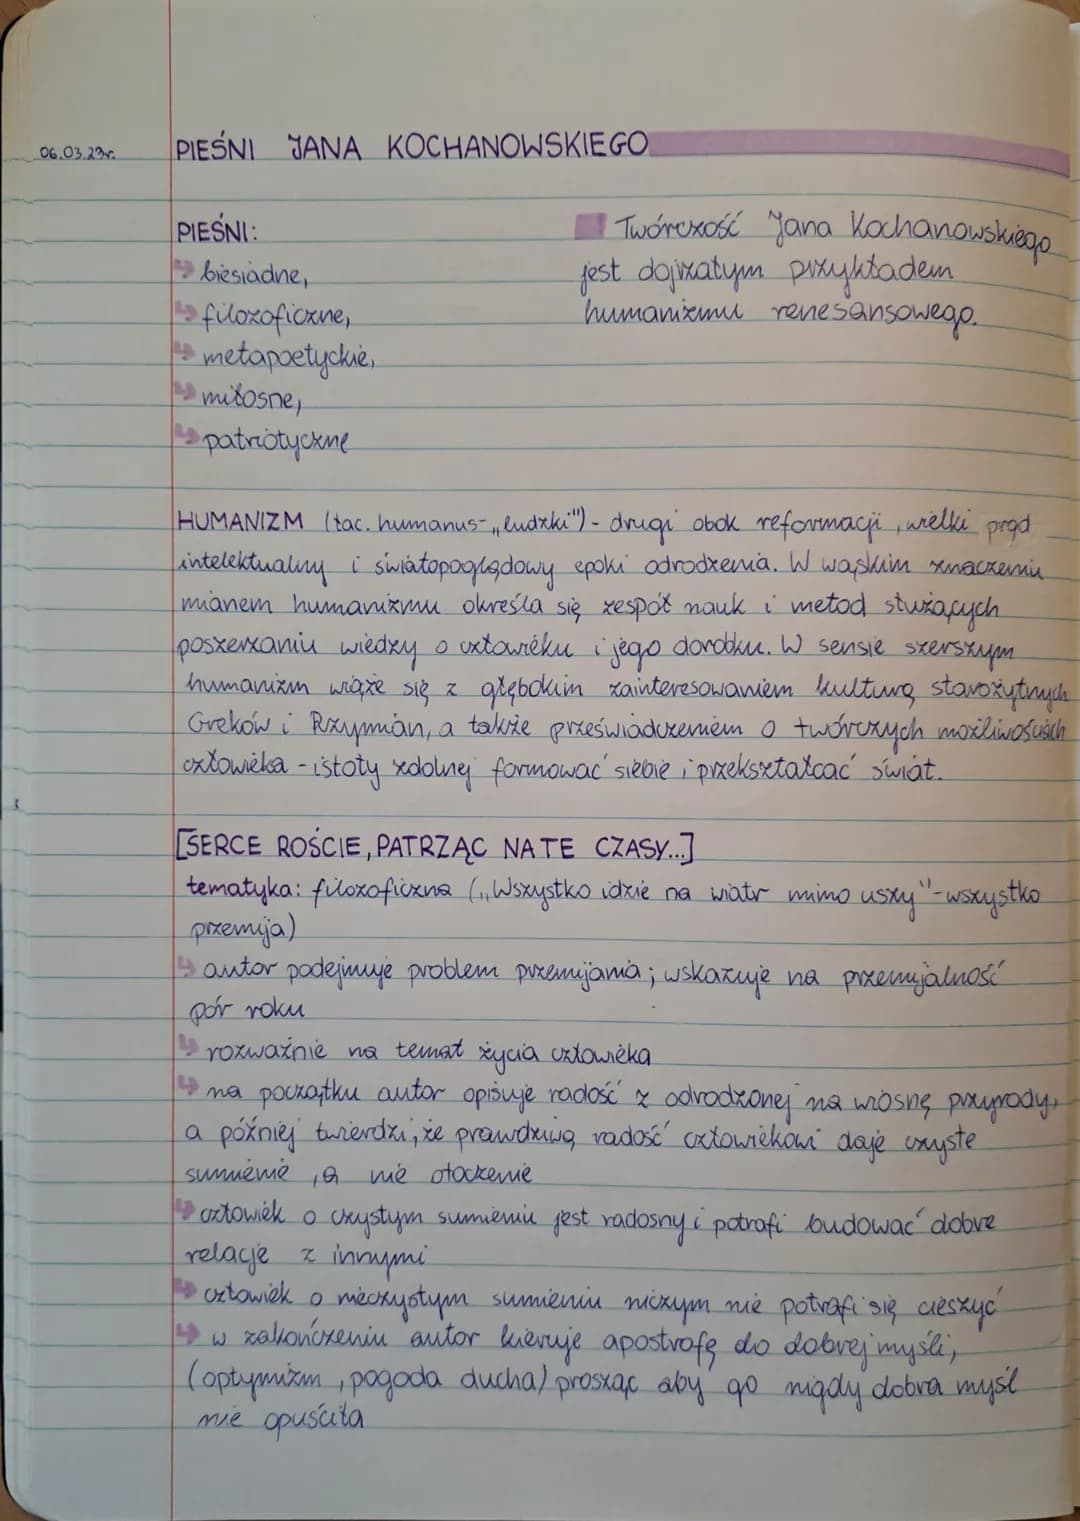 06.03.23r.
PIEŚNI JANA KOCHANOWSKIEGO
PIEŚNI:
biesiadne,
filozoficzne,
metapoetyckie,
miłosne,
patriotyczne
Twórczość Jana Kochanowskiego
jest dojrzałym przykładem
humanizmu renesansowego.
HUMANIZM (łac. humanus-„ludzki") - drugi obok reformacji, wielki prąd
intelektualny i światopoglądowy epoki odrodzenia. W wąskim znaczeniu
mianem humanizmu określa się zespół nauk i metod służących
poszerzaniu wiedzy o człowieku i jego dorobku. W sensie szerszym
humanizm wiąże się z głębokim zainteresowaniem kulturą starożytnych
Greków i Rzymian, a także przeświadczeniem o twórczych możliwościach
człowieka - istoty zdolnej formować siebie i przekształcać świat.
[SERCE ROŚCIE, PATRZĄC NA TE CZASY...]
tematyka: filozoficzna („Wszystko idzie na wiatr mimo uszy"-wszystko
przemija)
autor podejmuje problem przemijania; wskazuje na przemijalność
pór roku
rozważnie na temat życia człowieka
na początku autor opisuje radość z odrodzonej na wiosnę przyrody,
a później twierdzi, że prawdziwą radość człowiekowi daje czyste
sumienie, a nie otoczenie
człowiek o czystym sumieniu jest radosny i potrafi budować dobre
relacje z innymi
człowiek o nieczystym sumieniu niczym nie potrafi się cieszyć
w zakończeniu autor kieruje apostrofę do dobrej myśli,
(optymizm, pogoda ducha) prosząc aby go nigdy dobra myśl
nie opuściła